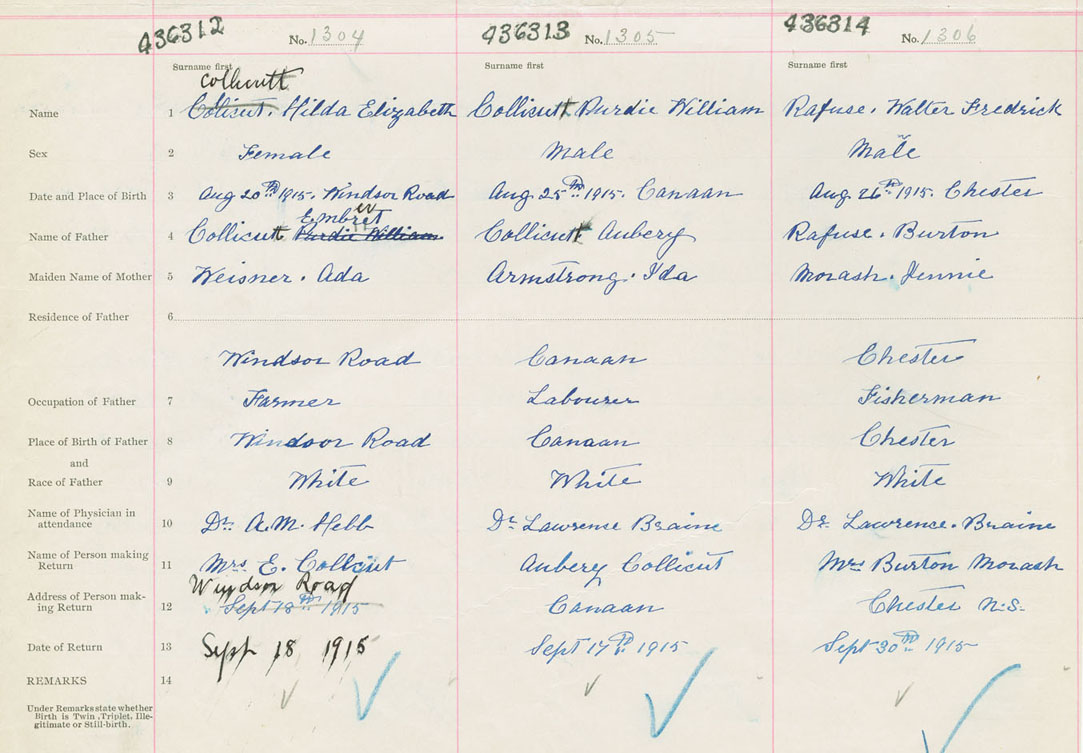 436312 No. 1304 436313 No. 1305 436314 No. 1306
Surname first Surname first Surname first
Collicutt
Name 1 Colicut. Hilda Elizabeth Collicutt Purdie William Rafuse. Walter Fredrick
Sex 2 Female Male Male
Date and Place of Birth 3 Aug 20th 1915. Windsor Road Aug. 25th 1915. Canaan Aug. 26th 1915. Chester
Embret
Name of Father 4 Collicutt Purdie William Collicutt Aubery Rafuse. Burton
Maiden Name of Mother 5 Weisner. Ada Armstrong. Ida Morash. Jennie
Residence of Father 6
Windsor Road Canaan Chester
Occupation of Father 7 Farmer Labourer Fisherman
Place of Birth of Father 8 Windsor Road Canaan Chester
and
Race of Father 9 White White White
Name of Physician in
attendance 10 Dr. A.M. Hebb Dr. Lawrence Braine Dr. Lawrence. Braine
Name of Person making
Return 11 Mrs E. Collicut Aubery Collicut Mrs Burton Morash
Windsor Road
Address of Person mak-
ing Return 12 Sept 18th 1915 Canaan Chester N.S.
Date of Return 13 Sept 18 1915 Sept 17th 1915 Sept 30th 1915
REMARKS 14
Under Remarks state whether
Birth is Twin, Triplet, Ille-
gitimate or Still-birth.